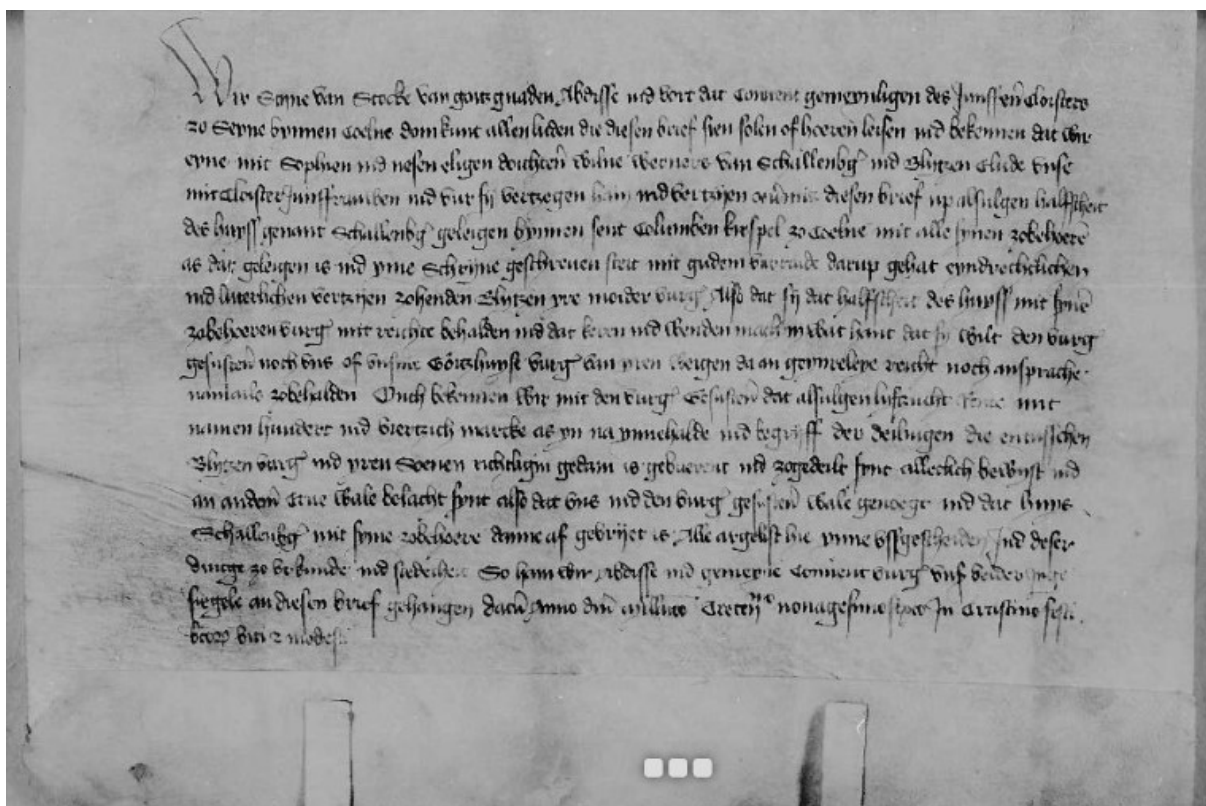 Wir Styne van Stocke van gotz gnaden Abdisse ind vort dat Convent gemeynligen des Junffern Cloisters
zo Seyne bynnen Coelne doin kunt allen luden die diesen brief sien solen of hoeren leisen ind bekennen dat wir
eyne mit Sophien ind nesen eligen doichtern wilne werners van Schallenbg ind Blytzen elude unse
mit Cloister Junffrauwen ind vur sy vertzegen hain ind vertzijen mit diesen brief up alsulgen halffscheit
des huyss genant Schallenbg geleigen bynnen sent Columben kirspel zo Coelne mit alle synen zobehoere
as dat geleigen is ind yme Schryne geschreven steit mit gudem darup gehat eyndrechtlichen
ind luterlichen vertzijen zohenden Blytzen yre moider vurg Also dat sy dat halffscheit des huyss mit syne
zobehoeren vurg mit reichte behalden ind dat keren ind wenden mach in wat hant dat sy wilt den vurg
gesustern noch uns of unsme Gotzhuyse vurg van yren weigen da an geynreleye reicht noch ansprache
zobehalden Ouch bekennen wir mit den vurg Gesustern dat alsulgen lyftzucht mit
namen hundert ind viertzich marcke as yn na ynnehalde ind begryff der deilingen die entusschen
Blytzen vurg ind yren Soenen gedain is geburent ind zogedeilt synt allerlich bewyst ind
an andern Erve wale belacht synt also dat uns ind den vurg gesustern wale genoegt ind dat huys
Schallenbg mit syme zobehoere danne af gevrijet is Alle argelist hie ynne ussgescheiden Ind deser
dinge zo urkunde ind stedicheit So hain wir Abdisse ind gemeyne Convent vurg uns beider Inge
siegele an diesen brief gehangen datum Anno dni millimo Trecen nonagesimo In Crastino festi
btorum viti z modesti